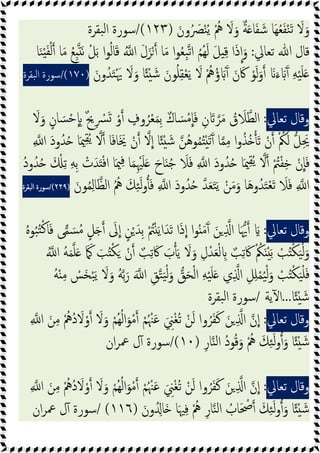 وَلَا تَنْفَعُهَا شَفَاعَةٌ وَلَا هُمْ يُنْصَرُونَ (١٢٣)/سورة البقرة
قال الله تعالي: وَإِذَا قِيلَ لَهُمُ اتَّبِعُوا مَا أَنْزَلَ اللَّهُ قَالُوا بَلْ نَتَّبِعُ مَا أَلْفَيْنَا
عَلَيْهِ آبَاءَنَا أَوَلَوْ كَانَ آبَاؤُهُمْ لَا يَعْقِلُونَ شَيْئًا وَلَا يَهْتَدُونَ (١٧٠)/سورة البقرة
وقال تعالي: الطَّلَاقُ مَرَّتَانِ فَإِمْسَاكٌ بِمَعْرُوفٍ أَوْ تَسْرِيحٌ بِإِحْسَانٍ وَلَا
يَحِلُّ لَكُمْ أَنْ تَأْخُذُوا مِمَّا آتَيْتُمُوهُنَّ شَيْئًا إِلَّا أَنْ يَخَافَا أَلَّا يُقِيمَا حُدُودَ اللَّهِ
فَإِنْ خِفْتُمْ أَلَّا يُقِيمَا حُدُودَ اللَّهِ فَلَا جُنَاحَ عَلَيْهِمَا فِيمَا افْتَدَتْ بِهِ تِلْكَ حُدُودُ
اللَّهِ فَلَا تَعْتَدُوهَا وَمَنْ يَتَعَدَّ حُدُودَ اللَّهِ فَأُولَئِكَ هُمُ الظَّالِمُونَ (٢٢٩)/سورة البقرة
وقال تعالي: يَا أَيُّهَا الَّذِينَ آمَنُوا إِذَا تَدَايَنْتُمْ بِدَيْنٍ إِلَى أَجَلٍ مُسَمًّى فَاكْتُبُوهُ
وَلْيَكْتُبْ بَيْنَكُمْ كَاتِبٌ بِالْعَدْلِ وَلَا يَأْبَ كَاتِبٌ أَنْ يَكْتُبَ كَمَا عَلَّمَهُ اللَّهُ
فَلْيَكْتُبْ وَلْيُمْلِلِ الَّذِي عَلَيْهِ الْحَقُّ وَلْيَتَّقِ اللَّهَ رَبَّهُ وَلَا يَبْخَسْ مِنْهُ
شَيْئًا...الآية /سورة البقرة
وقال تعالي: إِنَّ الَّذِينَ كَفَرُوا لَنْ تُغْنِيَ عَنْهُمْ أَمْوَالُهُمْ وَلَا أَوْلَادُهُمْ مِنَ اللَّهِ
شَيْئًا وَأُولَئِكَ هُمْ وَقُودُ النَّارِ (١٠)/سورة آل عمران
وقال تعالي: إِنَّ الَّذِينَ كَفَرُوا لَنْ تُغْنِيَ عَنْهُمْ أَمْوَالُهُمْ وَلَا أَوْلَادُهُمْ مِنَ اللَّهِ
شَيْئًا وَأُولَئِكَ أَصْحَابُ النَّارِ هُمْ فِيهَا خَالِدُونَ (١١٦) /سورة آل عمران